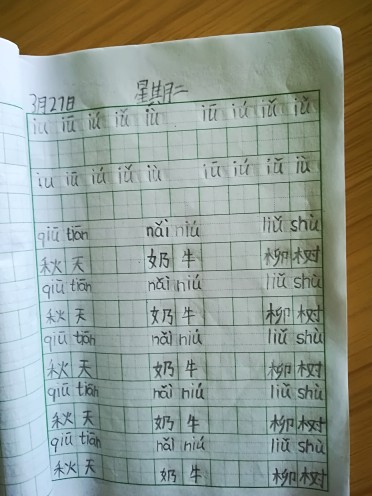 3月27日 星期二
iu iū iú iǔ iù iū iú iǔ iù
iu iū iú iǔ iù iū iú iǔ iù
qiū tiān nǎi niú liǔ shù
秋 天 奶 牛 柳 树
qiū tiān nǎi niú liǔ shù
秋 天 奶 牛 柳 树
qiū tiān nǎi niú liǔ shù
秋 天 奶 牛 柳 树
qiū tiān nǎi niú liǔ shù
秋 天 奶 牛 柳 树
qiū tiān nǎi niú liǔ shù
秋 天 奶 牛 柳 树